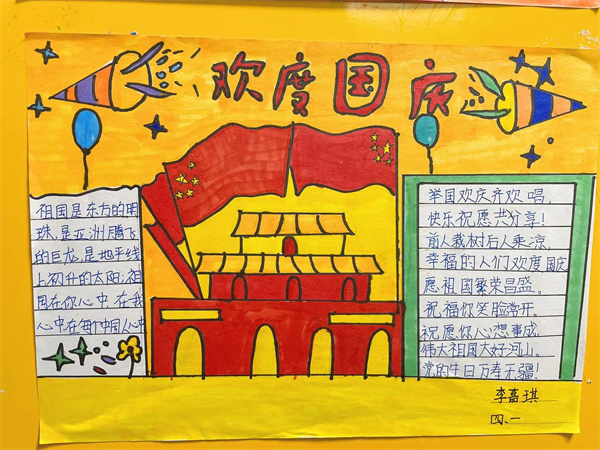 欢度国庆
祖国是东方的明
珠,是亚洲腾飞
的巨龙,是地平线
上初升的太阳;祖
国在你心中在我
心中在每个中国人心中
举国欢庆齐欢唱,
快乐祝愿共分享!
前人栽树后人乘凉,
幸福的人们欢度国庆
愿祖国繁荣昌盛,
祝福你笑脸常开。
祝愿你心想事成
伟大祖国大好河山。
党的生日万寿无疆!
李嘉琪
四、一